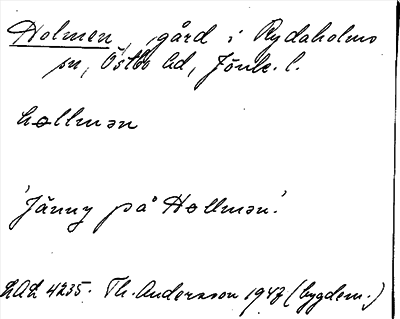 Holmen, gård i Rydaholms
sn, Östbo hd, Jönk. l.
hɷllmən
'Jänny på Hɷllmən.'
LAL 4235. Th. Andersson 1947 (bygdem.)